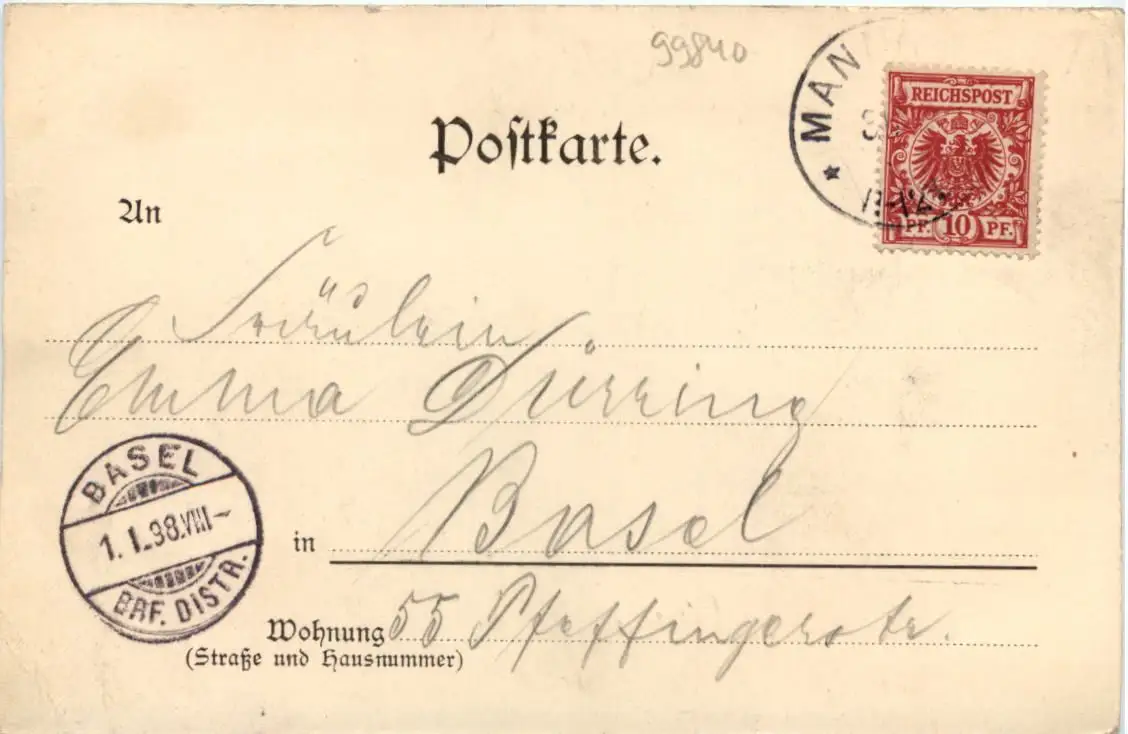 99840
MAN
REICHSPOST
PF. 10 PF.
Postkarte.
An
Fräulein
Emma Dürring
BASEL
1. I. 98. VIII –
BRF. DISTR.
in Basel
Wohnung 55 Pfeffingerstr.
(Straße und Hausnummer)